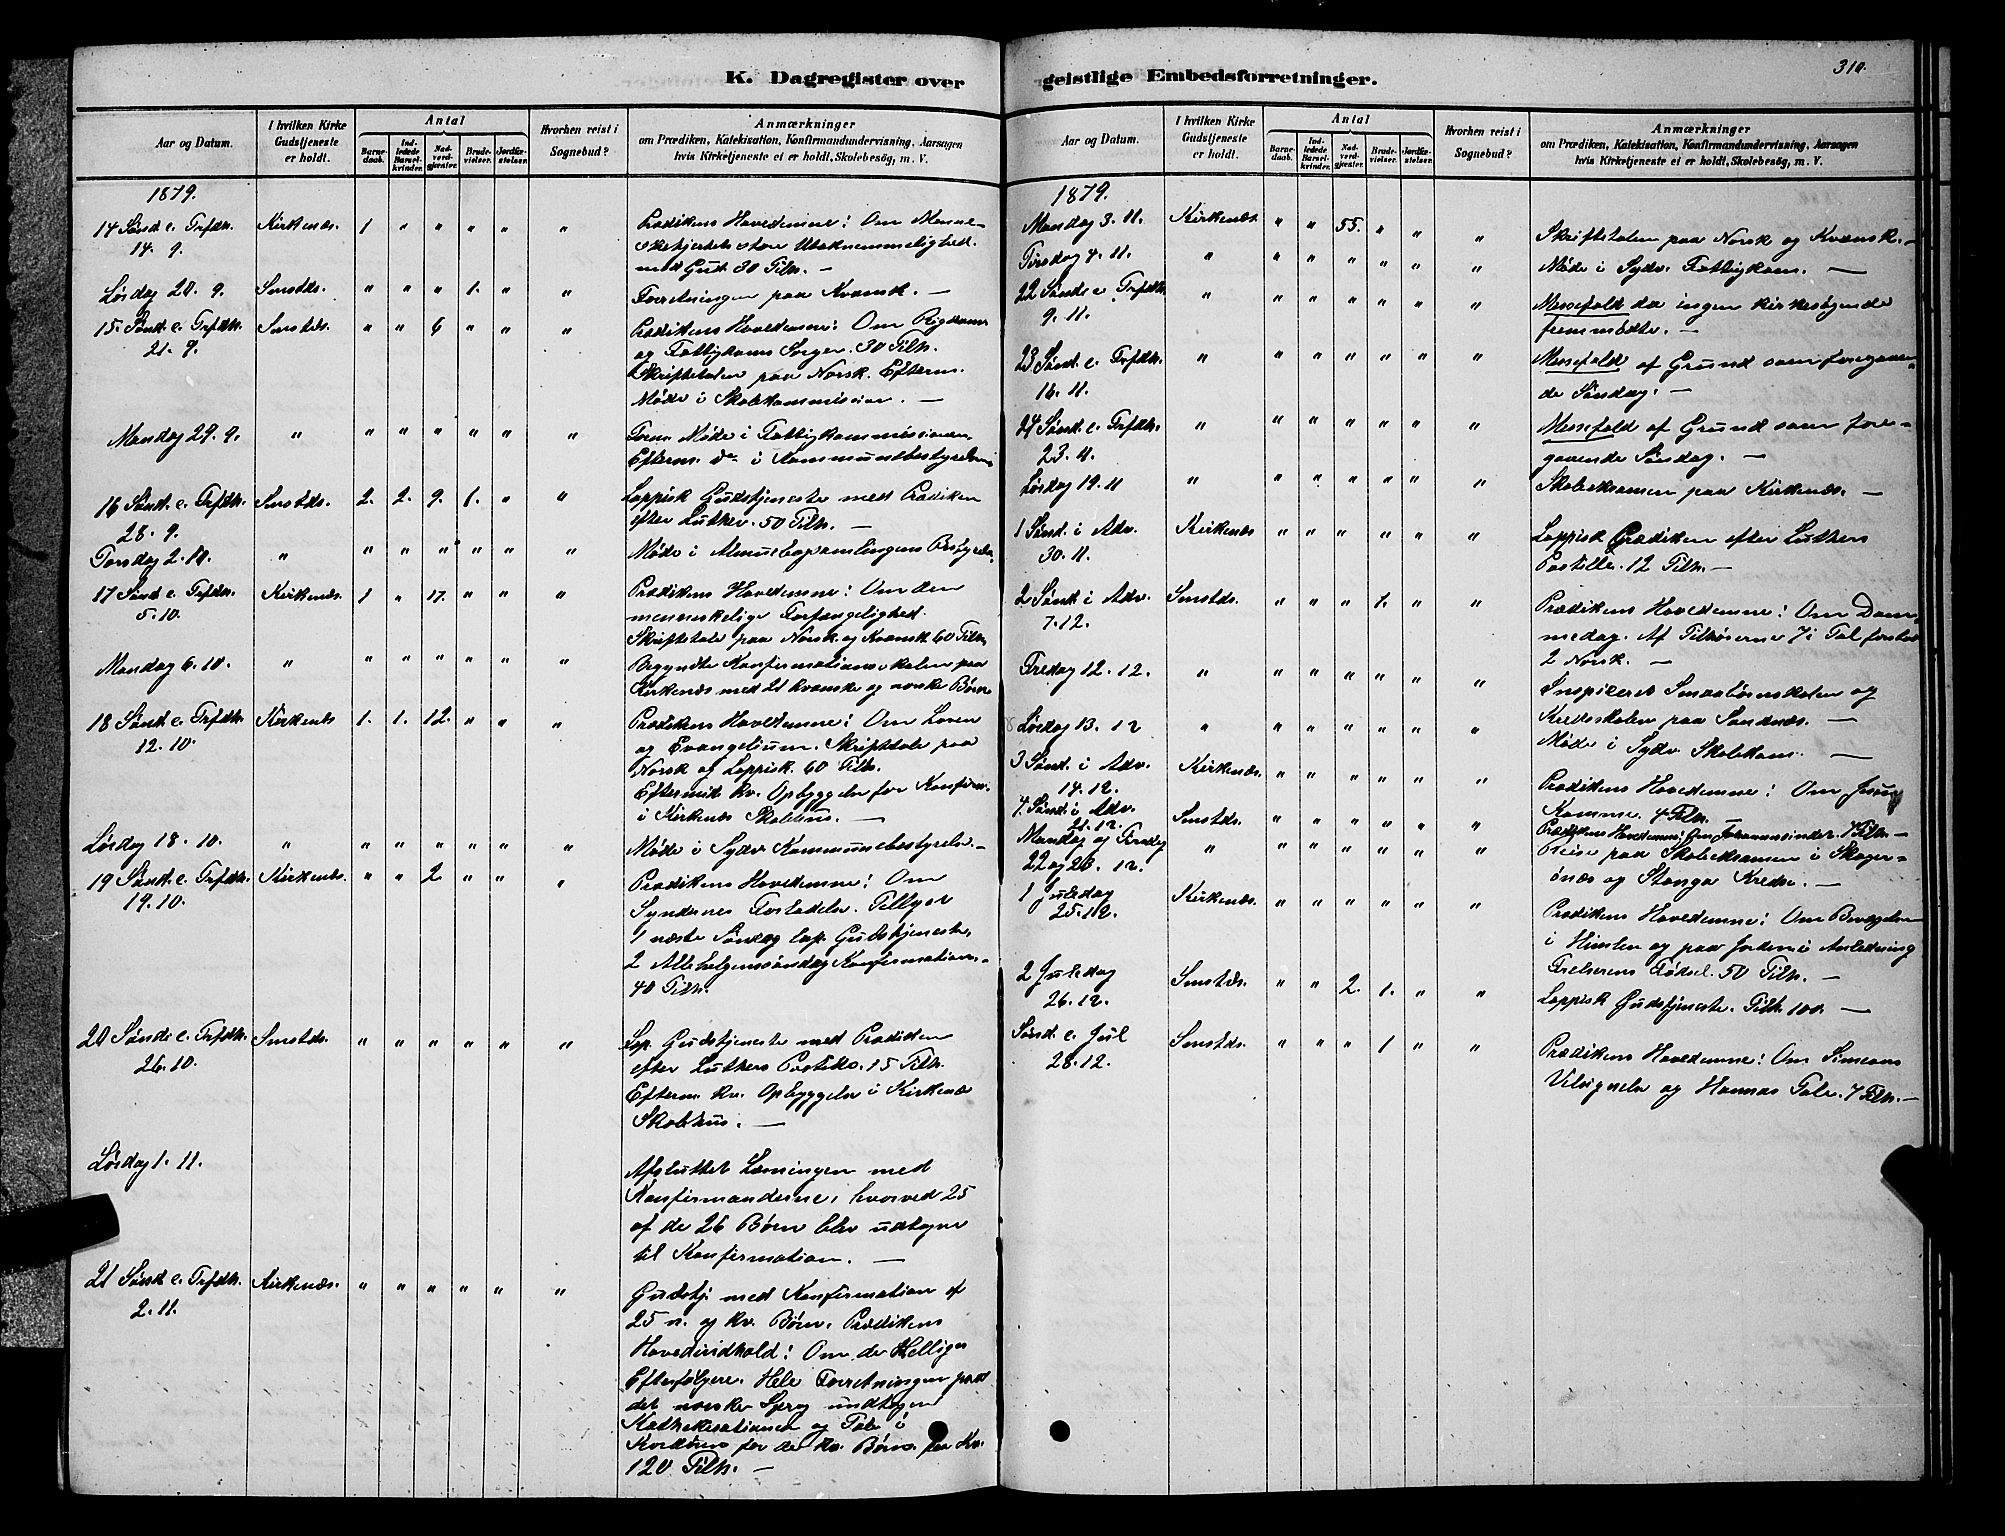 K. Dagregister over
Aar og Datum.
I hvilken Kirke Gudstjeneste er holdt.
Antal
Barnedaab.
Indledede Barselkvinder.
Nadverdgjester.
Brudevielser.
Jordfæstelser.
Hvorhen reist i Sognebud?
Anmærkninger
om Prædiken, Katekisation, Konfirmandundervisning, Aarsagen
hvis Kirketjeneste ei er holdt, Skolebesøg, m. V.
1879.
14 Sønd. e. Trfdh. Kirkenæs. 1 " " " " " Prædikens Hovedemne: Om Menne-
14. 9. skehjertets store Utaknemmelighed
mod Gud. 30 Tilh. —
Lørdag 20. 9. Smstds. " " " 1. " " Forretningen paa Kvænsk. —
15. Sønd. e. Trfdh. Smstds. " " 6 " " " Prædikens Hovedemne: Om Rigdoms
21. 9. og Fattigdoms Sorger. 30 Tilh.
Skriftetalen paa Norsk. Efterm.
Møde i Skolekommission. —
Mandag 29. 9. " " " " " " " Form. Møde i Fattigkommissionen,
Efterm. do i Kommunebestyrelsen
16 Sønd. e. Trfdh. Smstds. 2. 2. 9. 1. " " Lappisk Gudstjeneste med Prædiken
28. 9. efter Luther. 50 Tilh. —
Torsdag 2. 10. " " " " " " " Møde i Almuebogsamlingens Bestyrelse
17 Sønd. e. Trfdh. Kirkenæs. 1 " 17. " " " Prædikens Hovedemne: Om den
5. 10. menneskelige Forfængelighed.
Skriftetale paa Norsk og Kvænsk 60 Tilh.
Mandag 6. 10. " " " " " " " Begyndte Konfirmationsskolen paa
Kirkenæs med 21 kvænske og norske Børn
18 Sønd. e. Trfdh. Kirkenæs 1. 1. 12. " " " Prædikens Hovedemne: Om Loven
12. 10. og Evangelium. Skriftetale paa
Norsk og Lappisk. 60 Tilh.
Eftermid. kv. Opbyggelse for Konfirm.
i Kirkenæs Skolehus. —
Lørdag 18. 10. " " " " " " " Møde i Sydv. Kommunebestyrelse. —
19 Sønd. e. Trfdh. Kirkenæs. " " 2. " " " Prædikens Hovedemne: Om
19. 10. Syndernes Forladelse. Tillyst
1 næste Søndag lap. Gudstjeneste,
2 Allehelgenssøndag Konfirmation. -
40 Tilh.
20 Sønd. e. Trfdh. Smstds. " " " " " " Lap. Gudstjeneste med Prædiken
26. 10. efter Luthers Postille. 15 Tilh.
Efterm. kv. Opbyggelse i Kirkenæs
Skolehus. —
Lørdag 1. 11. Afsluttet Læsningen med
Konfirmanderne, hvorved 25
af de 26 Børn blev udtagne
til Konfirmation. —
21 Sønd. e. Trfdh. Kirkenæs. " " " " " " Gudstj. med Konfirmation af
2. 11. 25 n. og kv. Børn. Prædikens
Hovedindhold: Om de Helliges
Efterfølgere. Hele Forretningen paa
det norske Sprog undtagen
Kathekisationen og Tale i
Kordøren for de kv. Børn paa Kv.
120 Tilh. —
geistlige Embedsforretninger.
310.
Aar og Datum.
I hvilken Kirke Gudstjeneste er holdt.
Antal
Barnedaab.
Indledede Barselkvinder.
Nadverdgjester.
Brudevielser.
Jordfæstelser.
Hvorhen reist i Sognebud?
Anmærkninger
om Prædiken, Katekisation, Konfirmandundervisning, Aarsagen
hvis Kirketjeneste ei er holdt, Skolebesøg, m. V.
1879.
Mandag 3. 11. Kirkenæs. " " 55. " " " Skriftetalen paa Norsk og Kvænsk. —
Tirsdag 4. 11. " " " " " " " Møde i Sydv. Fattigkom. —
22 Sønd. e. Trfdh. " " " " " " " Messefald da ingen kirkesøgende
9. 11. fremmødte. —
23 Sønd. e. Trfdh. " " " " " " " Messefald af Grund som foregaaen-
16. 11. de Søndag. —
24 Sønd. e. Trfdh. " " " " " " " Messefald af Grund som fore-
23. 11. gaaende Søndag. —
Lørdag 19. 11 " " " " " " " Skoleeksamen paa Kirkenæs. —
1 Sønd. i Adv. Kirkenæs " " " " " " Lappisk Prædiken efter Luthers
30. 11. Postille. 12 Tilh. —
2 Sønd. i Adv. Smstds. " " " 1. " " Prædikens Hovedemne: Om Dom-
7. 12. medag. Af Tilhørerne 7 i Tal forstod
2 Norsk. —
Fredag 12. 12. " " " " " " " Inspiceret Smaabørnskolen og
Kredsskolen paa Sandnæs. —
Lørdag 13. 12 " " " " " " " Møde i Sydv. Skolekom. —
3 Sønd. i Adv. Kirkenæs. " " " " " " Prædikens Hovedemne: Om Jesu
14. 12. Komme. 4 Tilh. —
4. Sønd. i Adv. Smstds. " " " " " " Prædikens Hovedemne: Om Johannes 4 Tilh. —
21. 12.
Mandag og Tirsdag " " " " " " " Reise paa Skoleeksamen i Skoger-
22 og 23. 12. ønæs og Stonga Kredse. —
1 Juledag Kirkenæs. " " " " " " Prædikens Hovedemne: Om Bevægelsen
25. 12. i Himlen og paa Jorden i Anledning
Frelserens Fødsel. 50 Tilh. —
2 Juledag Smstds. " " 2. 1. " " Lappisk Gudstjeneste. Tilh. 100. —
26. 12.
Sønd. e. Jul Smstds. " " " 1 " " Prædikens Hovedemne: Om Simeons
28. 12. Velsignelse og Hannas Tale. 7 Tilh. —